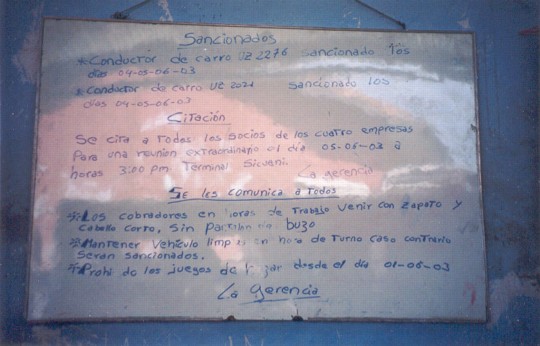 Sancionados
*Conductor de carro UZ 2276 Sancionado los
días 04-05-06-03
*Conductor de carro UC 2021 Sancionado los
días 04-05-06-03
Citación
Se cita a Todos los Socios de los cuatro empresas
Para una reunión extraordinario el día 05-06-03 a
horas 3:00 pm Terminal Sicuani.
La gerencia
Se les comunica a todos
*Los cobradores en horas de Trabajo Venir con Zapato y
Cabello Corto, Sin buzo
*Mantener Vehículo en hora de Turno Caso Contrario
Seran Sancionados.
* los juegos de desde el día 01-06-03
La gerencia